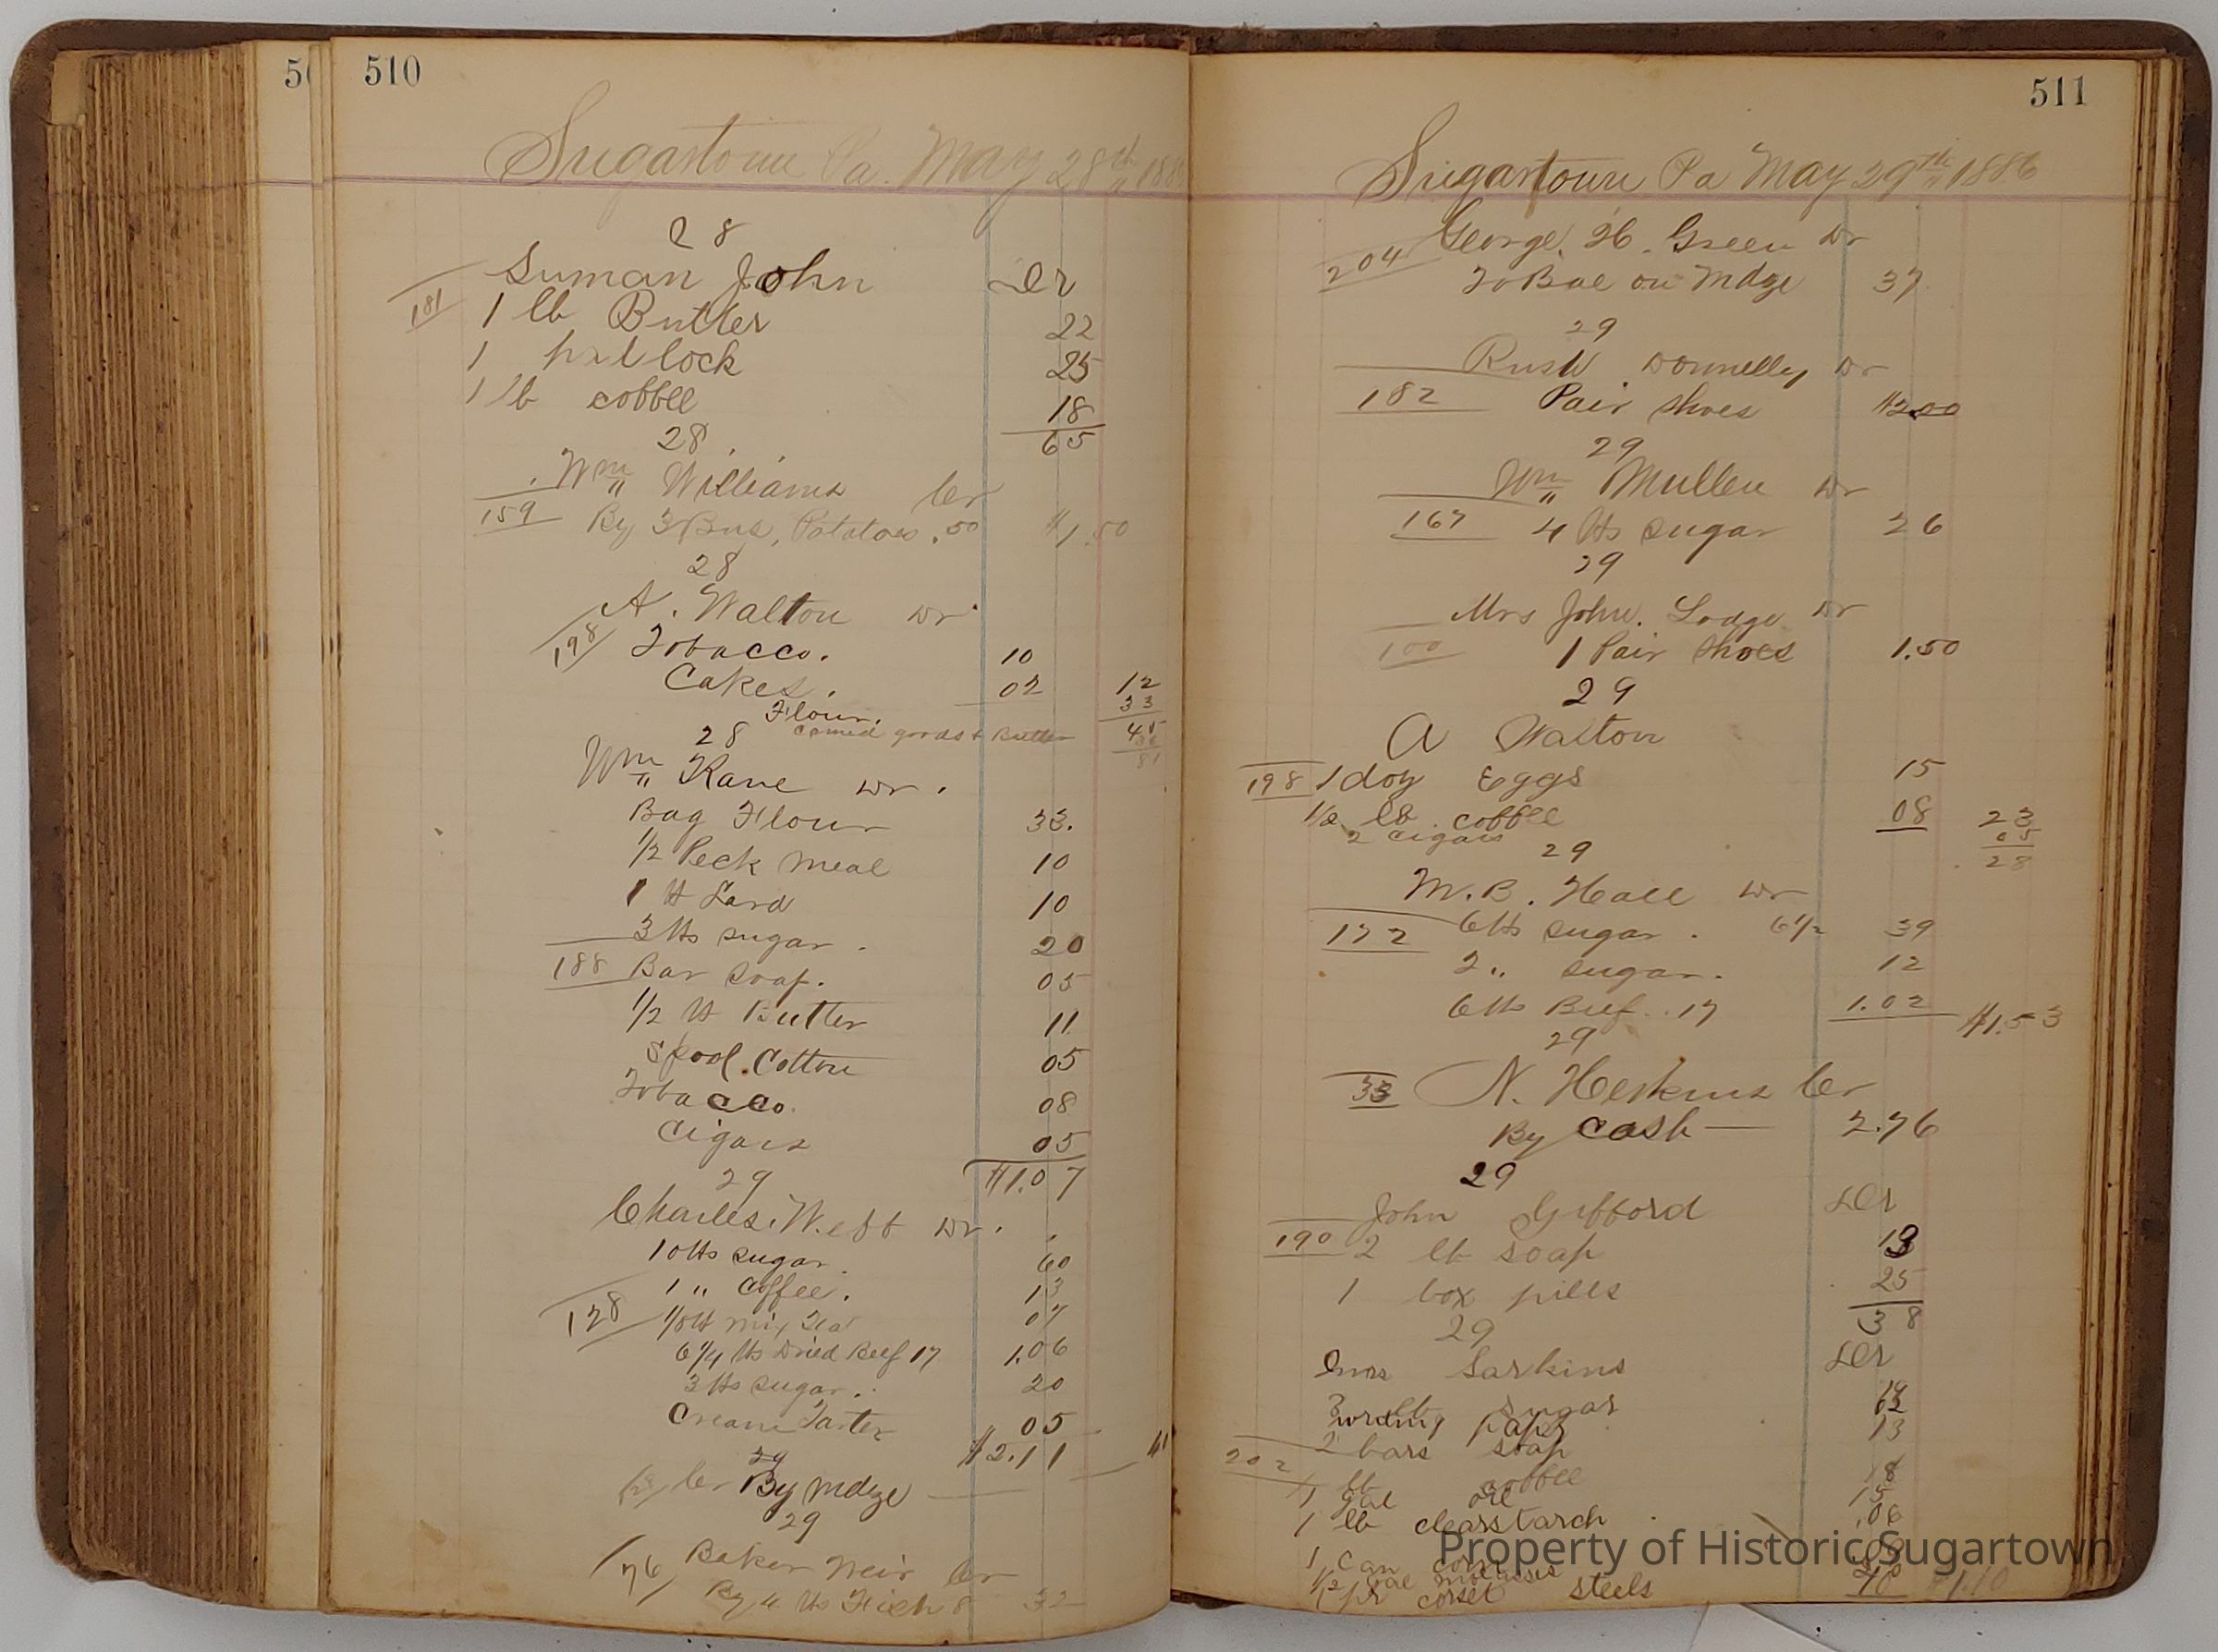 510
Sugartown Pa. May 28th 188
28
Suman John Dr
181
1 lb Butter 22
1 padlock 25
1 lb coffee 18
65
28
Wm Williams Cr
159 By 3 Bus, Potatoes .50 $1.50
28
A. Walton Dr
198 Tobacco. 10
Cakes. 02 12
33
Flour. 45
canned goods & Butter 36
81
28
Wm Kane Dr.
Bag Flour 33.
1/2 Peck Meal 10
1 lb Lard 10
3 lbs sugar. 20
188 Bar Soap. 05
1/2 lb Butter 11
Spool Cotton 05
Tobacco. 08
Cigars 05
$1.07
29
Charles. Webb Dr.
10 lbs sugar. 60
1 " Coffee. 13
128 1/8 lb Mix Tea 07
6 1/4 lbs Dried Beef 17 1.06
3 lbs sugar. 20
Cream Tarter 05
$2.11
29
Cr By Mdze
29
76 Baker Weir Cr
By 4 lbs Fish 8 32
511
Sugartown Pa May 29th 1886
George. H. Green Dr
204 To Bal on Mdze 37
29
Rush Donnelly Dr
182 Pair Shoes $2.00
29
Wm Mullen Dr
167 4 lbs sugar 26
29
Mrs John. Lodge Dr
100 1 Pair Shoes 1.50
29
A Walton
198 1 doz Eggs 15
1/2 lb coffee 08 23
2 cigars 05
28
29
M.B. Hall Dr
172 6 lbs sugar. 6 1/2 39
2 " sugar. 12
6 lbs Beef. 17 1.02 $1.53
29
33 N. Heskins Cr
By Cash 2.76
29
John Gifford Dr
190 2 lb soap 13
1 box pills 25
38
29
Larkins Dr
3 lb sugar
writing paper
2 bars soap 13
202
1 lb coffee 18
1 gal oil 15
1 lb clearstarch .06
1 Can corn
1/2 gal molasses
1 pr corset steels 40 1.10
Property of Historic Sugartown